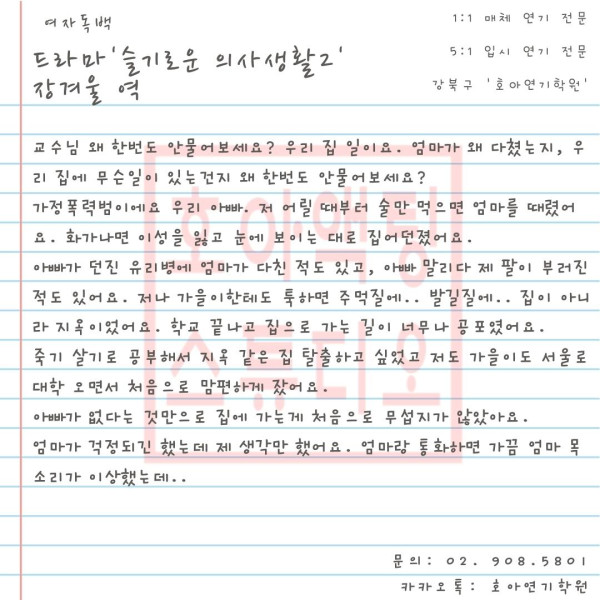 여자독백
1:1 매체 연기 전문
드라마'슬기로운 의사생활2'
5:1 입시 연기 전문
장겨울 역
강북구 '호아연기학원'
교수님 왜 한번도 안물어보세요? 우리 집 일이요. 엄마가 왜 다쳤는지, 우
리 집에 무슨일이 있는건지 왜 한번도 안물어보세요?
가정폭력범이에요 우리 아빠. 저 어릴 때부터 술만 먹으면 엄마를 때렸어
요. 화가나면 이성을 잃고 눈에 보이는 대로 집어던졌어요.
아빠가 던진 유리병에 엄마가 다친 적도 있고, 아빠 말리다 제 팔이 부러진
적도 있어요. 저나 가을이한테도 툭하면 주먹질에.. 발길질에.. 집이 아니
라 지옥이었어요. 학교 끝나고 집으로 가는 길이 너무나 공포였어요.
죽기 살기로 공부해서 지옥 같은 집 탈출하고 싶었고 저도 가을이도 서울로
대학 오면서 처음으로 맘편하게 잤어요.
아빠가 없다는 것만으로 집에 가는게 처음으로 무섭지가 않았아요.
엄마가 걱정되긴 했는데 제 생각만 했어요. 엄마랑 통화하면 가끔 엄마 목
소리가 이상했는데..
호아액팅
스튜디오
문의: 02. 908.5801
카카오톡: 호아연기학원